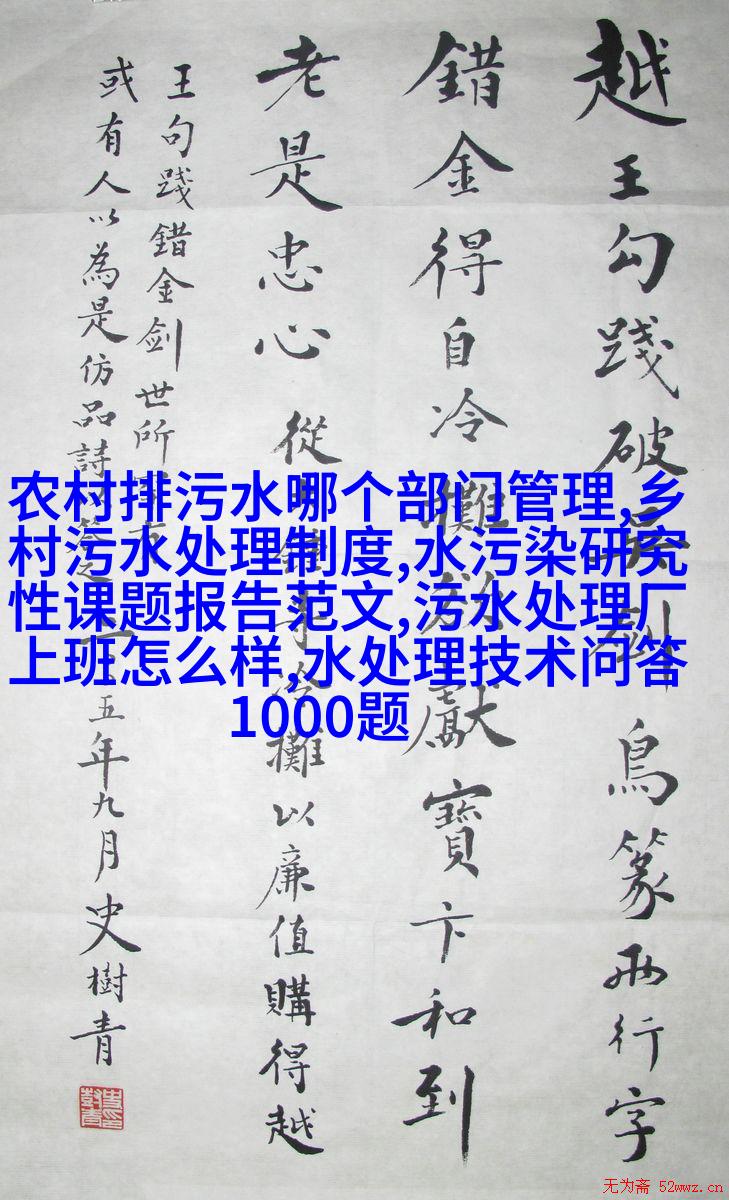 越王勾踐破吳劍鳥篆兩行字
錯金得自冷攤獻寶卞和到
老是忠心 從冷攤以廉值購得越
王句踐錯金劍世所
或有人以為是仿品詩五年九月史樹青
农村排污水哪个部门管理,乡
村污水处理制度,水污染研究
性课题报告范文,污水处理厂
上班怎么样,水处理技术问答
1000题
无为斋 52wwz.cn